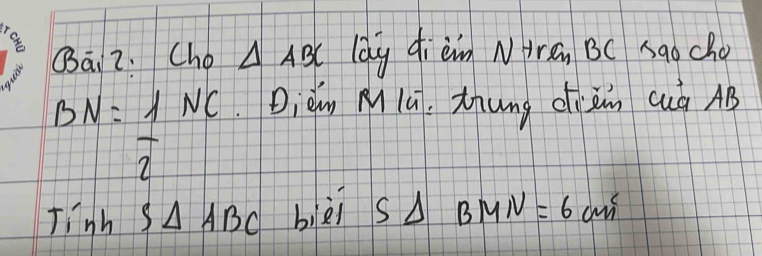 ẾT CHỮ
người
Bài 2: Cho Δ ABC lấy điểm N trên BC sao cho
BN = 1/2 NC. Điểm M là trung điểm của AB
Tính S Δ ABC biết S Δ BMN = 6 cm²